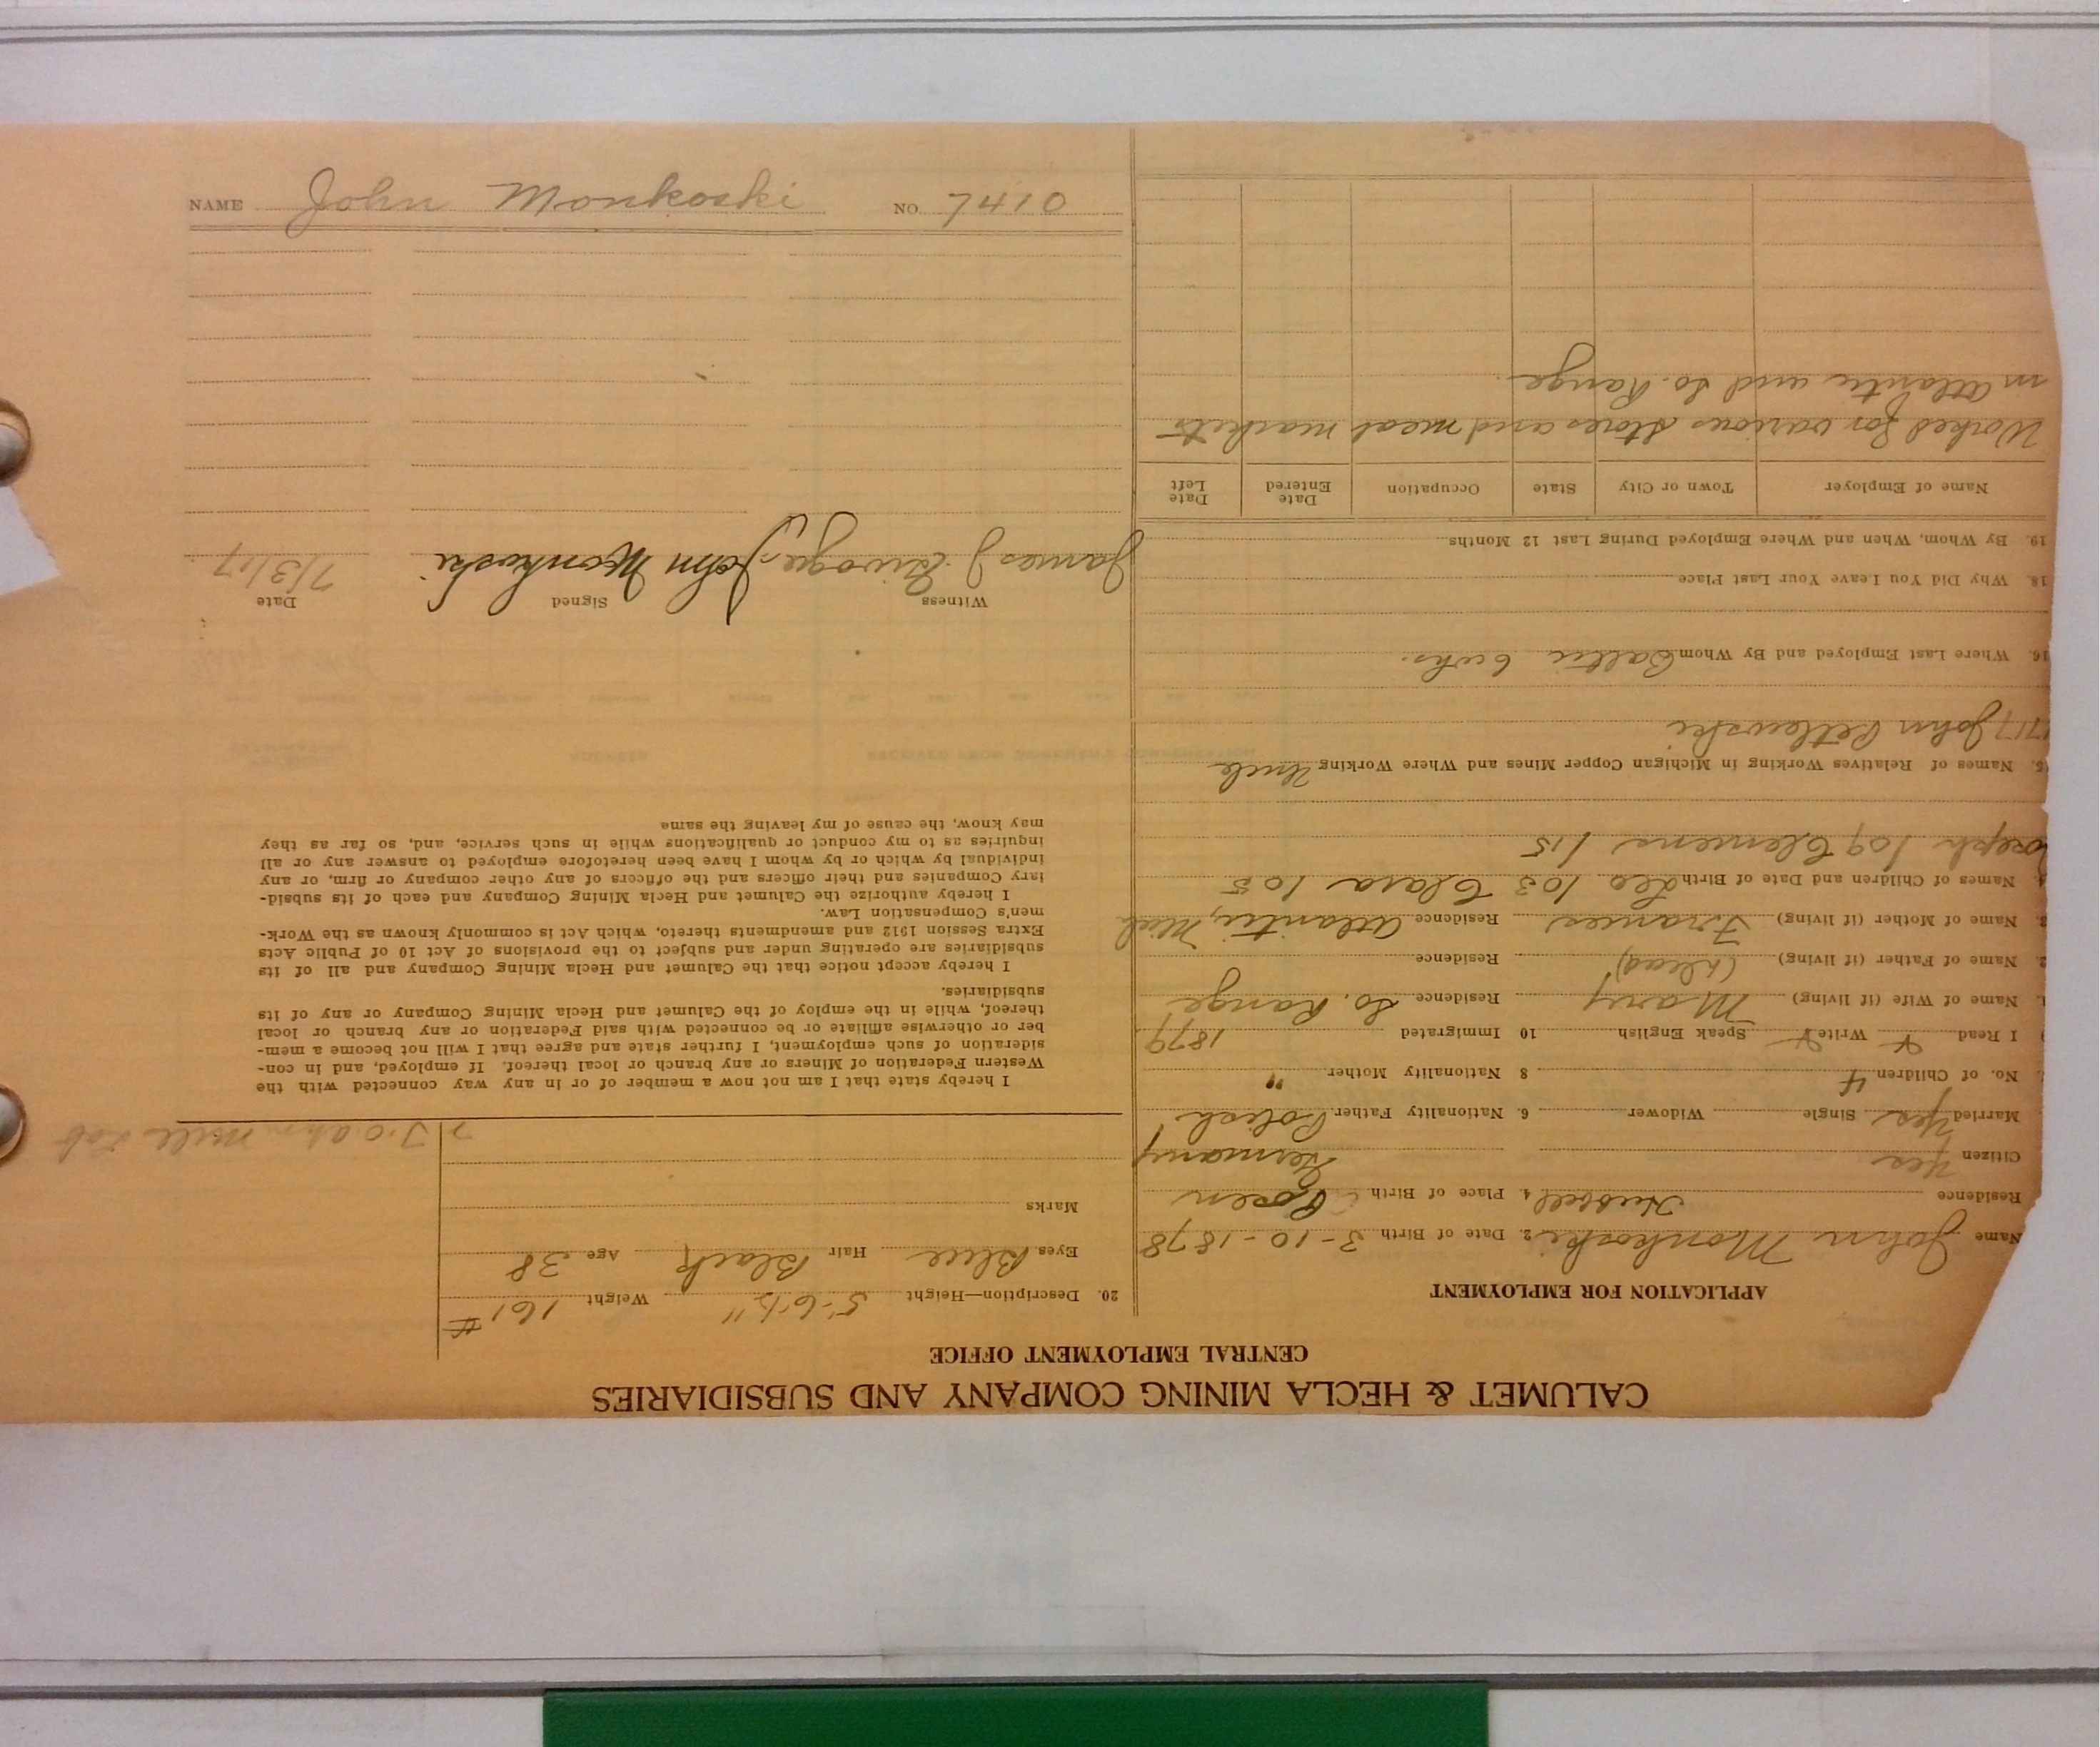 CALUMET & HECLA MINING COMPANY AND SUBSIDIARIES
CENTRAL EMPLOYMENT OFFICE
APPLICATION FOR EMPLOYMENT
Name John Monkoski 2. Date of Birth 3-10-1878
Residence Hubbell 4. Place of Birth Posen
Citizen Yes Germany
Married Yes Single Widower 6. Nationality Father Polish
No. of Children 4 8 Nationality Mother "
I Read Write Speak English 10 Immigrated 1879
Name of Wife (if living) Mary Residence So. Range
2. Name of Father (if living) (dead) Residence
3. Name of Mother (if living) Frances Residence Atlantic, Mich
4. Names of Children and Date of Birth Leo 103 Clara 105
Joseph 109 Clemens 115
5. Names of Relatives Working in Michigan Copper Mines and Where Working Uncle
John
16. Where Last Employed and By Whom Baltic 6 wks.
18. Why Did You Leave Your Last Place
19. By Whom, When and Where Employed During Last 12 Months
Name of Employer Town or City State Occupation Date Entered Date Left
Worked for various stores and meat markets
in Atlantic and So. Range
20. Description—Height 5'-6½" Weight 161 #
Eyes Blue Hair Black Age 38
Marks
mill
I hereby state that I am not now a member of or in any way connected with the
Western Federation of Miners or any branch or local thereof. If employed, and in con-
sideration of such employment, I further state and agree that I will not become a mem-
ber or otherwise affiliate or be connected with said Federation or any branch or local
thereof, while in the employ of the Calumet and Hecla Mining Company or any of its
subsidiaries.
I hereby accept notice that the Calumet and Hecla Mining Company and all of its
subsidiaries are operating under and subject to the provisions of Act 10 of Public Acts
Extra Session 1912 and amendments thereto, which Act is commonly known as the Work-
men's Compensation Law.
I hereby authorize the Calumet and Hecla Mining Company and each of its subsid-
iary Companies and their officers and the officers of any other company or firm, or any
individual by which or by whom I have been heretofore employed to answer any or all
inquiries as to my conduct or qualifications while in such service, and, so far as they
may know, the cause of my leaving the same
Witness Signed Date
James J. John Monkoski 7/3/17
NAME John Monkoski NO. 7410